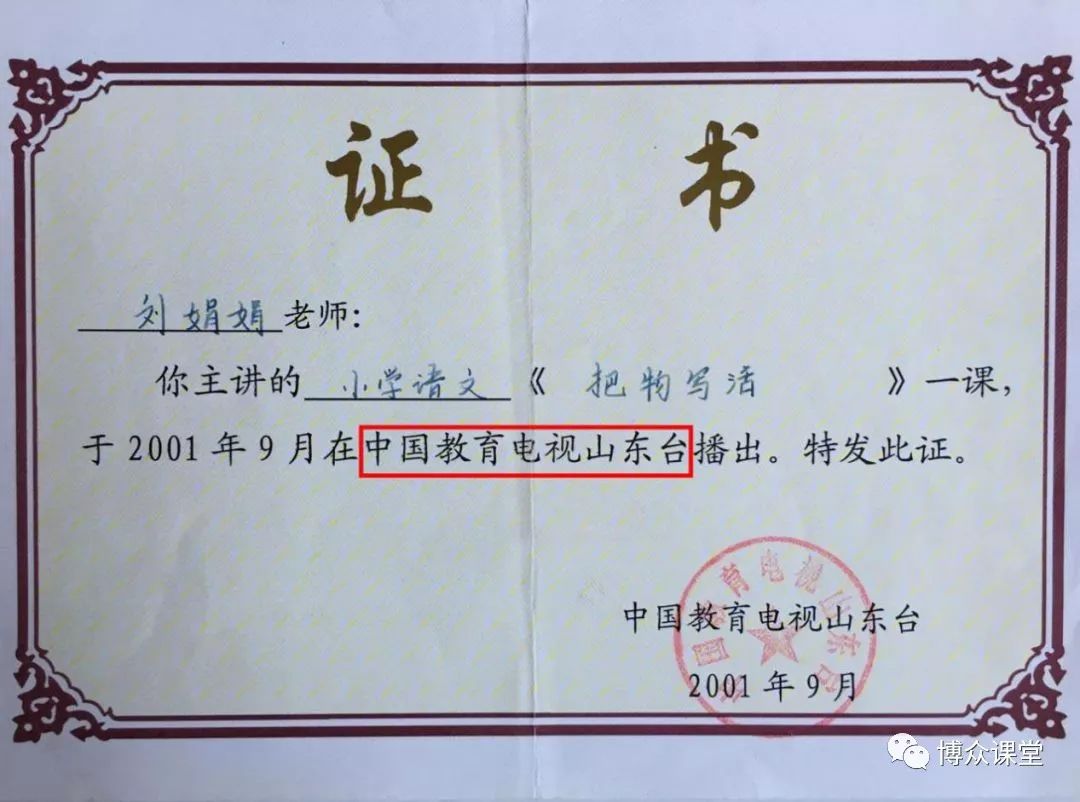 证 书
刘娟娟老师:
你主讲的 小学语文 《 把物写活 》一课,
于 2001 年 9 月在中国教育电视山东台播出。特发此证。
中国教育电视山东台
中国教育电视山东台
2001 年 9 月
博众课堂